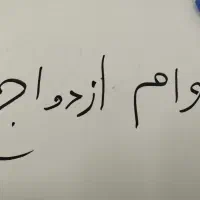 وام ازدواج